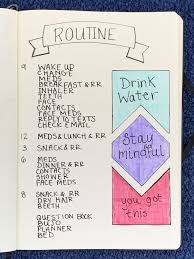 ROUTINE
9 WAKE UP
CHANGE
MEDS
BREAKFAST & RR
INHALER
TEETH
FACE
CONTACTS
FACE MEDS
REPLY TO TEXTS
CHECK EMAIL
12 MEDS/LUNCH & RR
3 SNACK & RR
6 MEDS
DINNER & RR
CONTACTS
SHOWER
FACE MEDS
8 SNACK & RR
DRY HAIR
TEETH
QUESTION BOOK
BUJO
PLANNER
BED
Drink
Water
Stay
Mindful
you got
this